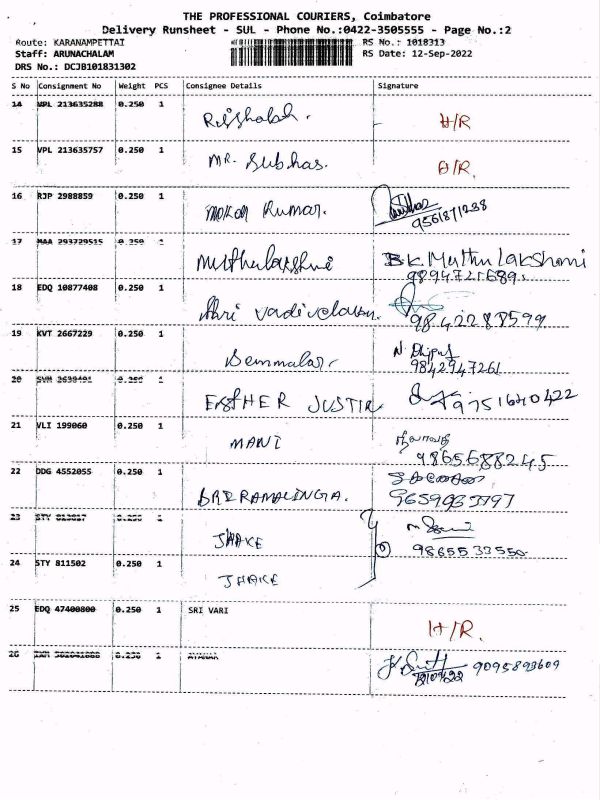 THE PROFESSIONAL COURIERS, Coimbatore
Delivery Runsheet - SUL - Phone No.:0422-3505555 - Page No.:2
Route: KARANAMPETTAI RS No.: 1018313
Staff: ARUNACHALAM RS Date: 12-Sep-2022
DRS No.: DCJB101831302
S No Consignment No Weight PCS Consignee Details Signature
14 VPL 213635288 0.250 1 H/R
15 VPL 213635757 0.250 1 MR. Subhas. D/R.
16 RJP 2988859 0.250 1 Kumar. 9561871238
17 MAA 293729515 0.250 1 Muthulakshmi B.K. Muthu Lakshmi
9894721689.
18 EDQ 10877408 0.250 1 Shri Vadivelavan. 9842288599
19 KVT 2667229 0.250 1 Semmalar. N.
9842947261
20 SVM 0.250 1 ESTHER JUSTIN 9751640422
21 VLI 199060 0.250 1 MANI
9865688245
22 DDG 4552055 0.250 1 SRIRAMALINGA.
23 STY 0.250 1 JHAKE
9865533550
24 STY 811502 0.250 1 JHAKE
25 EDQ 47400800 0.250 1 SRI VARI H/R.
26 0.250 1 9095893609
12/09/22